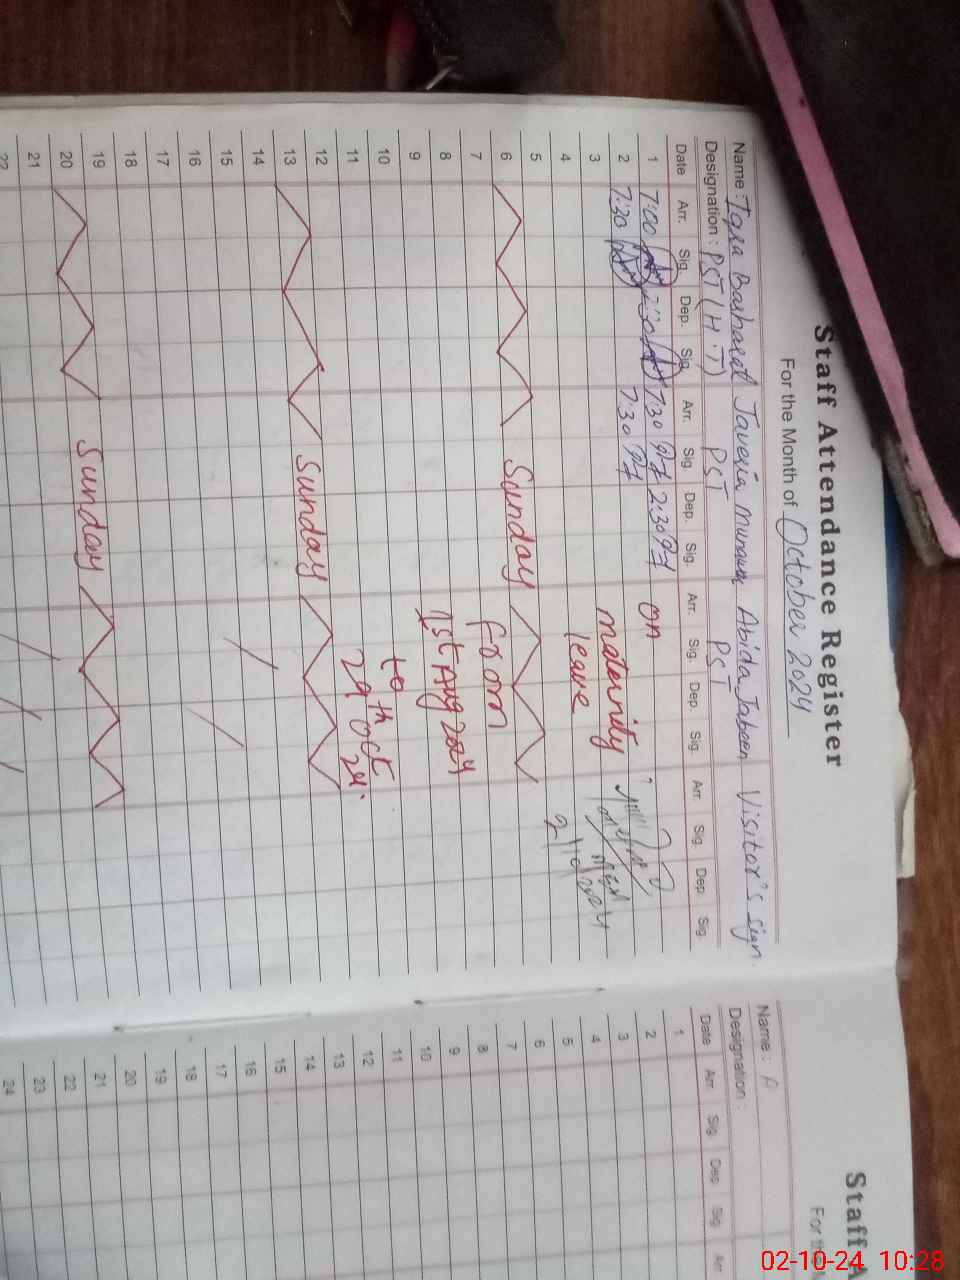 Staff Attendance Register
For the Month of October 2024
Name : Iqra Basharat Javeria Munawar Abida Jabeen Visitor's sign.
Designation : PST (H.T) PST PST
Date Arr. Sig. Dep. Sig. Arr. Sig. Dep. Sig. Arr. Sig. Dep. Sig. Arr. Sig. Dep. Sig.
1 7:00 2:30 7:30 2:30 on
2 7:30 7:30 maternity
3 leave
4
5
6 Sunday
7 from
8 1st Aug 2024
9
10 to
11 29th Oct
12 24.
13 Sunday
14
15
16
17
18
19
20 Sunday
21
22
Staff A
For the
Name : A
Designation :
Date Arr. Sig. Dep. Sig. Arr.
1
2
3
4
5
6
7
8
9
10
11
12
13
14
15
16
17
18
19
20
21
22
23
24
02-10-24 10:28